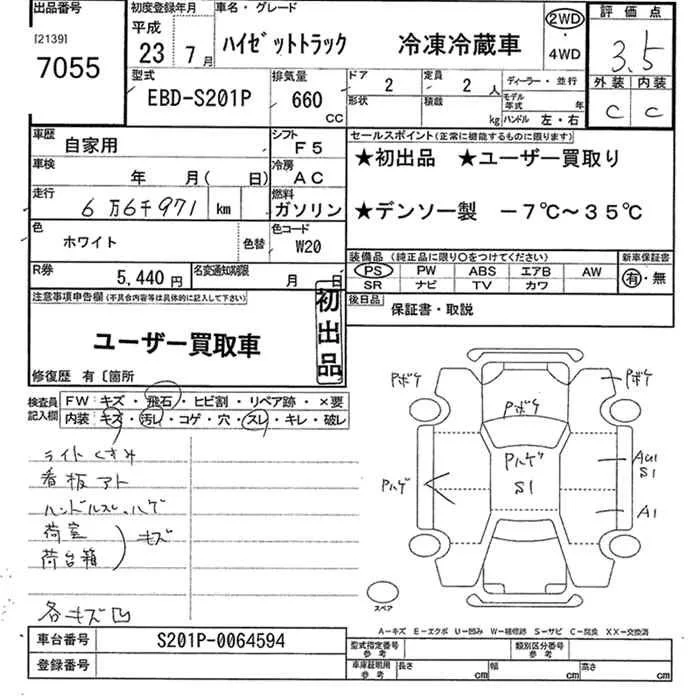 出品番号
[2139]
7055
初度登録年月
平成
23 7月
車名・グレード
ハイゼットトラック 冷凍冷蔵車
2WD
・
4WD
評価点
3.5
外装 内装
C C
型式
EBD-S201P
排気量
660
CC
ドア
2
定員
2人
形状
積載
kg
ディーラー・並行
モデル年式 年
ハンドル 左・右
車歴
自家用
シフト
F5
車検
年 月( 日)
冷房
AC
走行
6万6千971 km
燃料
ガソリン
色
ホワイト
色替
色コード
W20
R券
5,440円
名変通知期限
月 日
セールスポイント(正常に機能するものに限ります)
★初出品 ★ユーザー買取り
★デンソー製 -7℃~35℃
装備品(純正品に限り〇をつけてください)
PS PW ABS エアB AW
SR ナビ TV カワ
新車保証書
有・無
後日品
保証書・取説
注意事項申告欄(不具合内容等は具体的に記入して下さい)
初出品
ユーザー買取車
修復歴 有〔箇所
検査員記入欄
FW キズ・飛石・ヒビ割・リペア跡・×要
内装 キズ・汚レ・コゲ・穴・スレ・キレ・破レ
ライトくすみ
看板アト
ハンドルスレ、ハゲ
荷室
荷台箱
キズ
各キズ凹
Pボケ
Pボケ
Pボケ
Pハゲ
S1
Pハゲ
AU1
S1
A1
スペア
A-キズ E-エクボ U-凹み W-補修跡 S-サビ C-腐食 XX-交換済
車台番号
S201P-0064594
登録番号
型式指定番号
参考
類別区分番号
参考
車庫証明用
参考
長さ cm
幅 cm
高さ cm